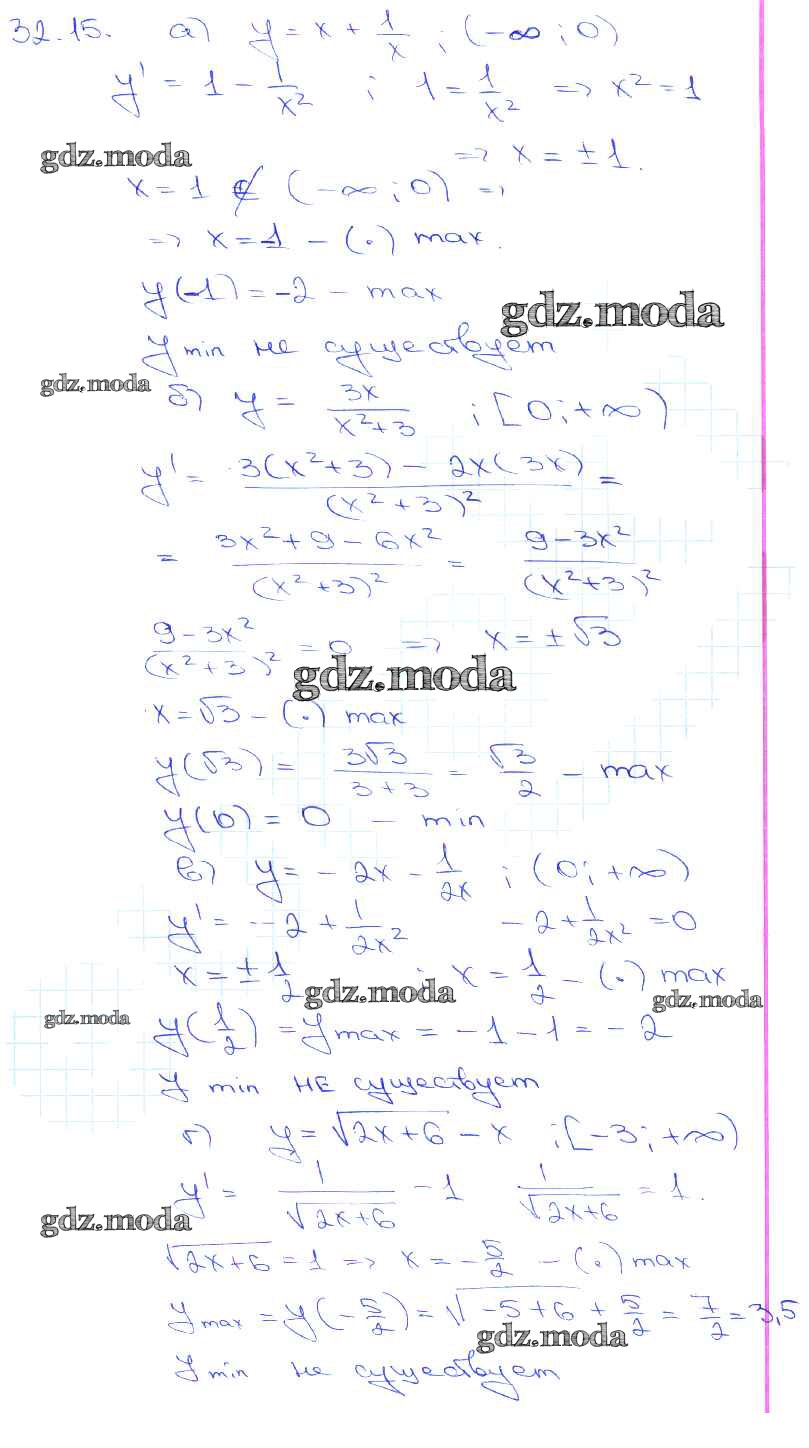 32.15. а) y = x + 1/x ; (-∞; 0)
y' = 1 - 1/x² ; 1 = 1/x² => x² = 1
gdz.moda
=> x = ±1.
x = 1 ∉ (-∞; 0) =>
=> x = -1 - (•) max.
y(-1) = -2 - max
gdz.moda
y min не существует
gdz.moda
б) y = 3x/(x²+3) ; [0; +∞)
y' = 3(x²+3) - 2x(3x)/(x²+3)² =
= 3x²+9-6x²/(x²+3)² = 9-3x²/(x²+3)²
9-3x²/(x²+3)² = 0 => x = ±√3
gdz.moda
x = √3 - (•) max
y(√3) = 3√3/(3+3) = √3/2 - max
y(0) = 0 - min
в) y = -2x - 1/2x ; (0; +∞)
y' = -2 + 1/2x² -2 + 1/2x² = 0
x = ±1/2 ; x = 1/2 - (•) max
gdz.moda
gdz.moda
gdz.moda
y(1/2) = y max = -1 - 1 = -2
y min не существует
г) y = √(2x+6) - x ; [-3; +∞)
y' = 1/√(2x+6) - 1 1/√(2x+6) = 1.
gdz.moda
√(2x+6) = 1 => x = -5/2 - (•) max
y max = y(-5/2) = √(-5+6) + 5/2 = 7/2 = 3,5
gdz.moda
y min не существует